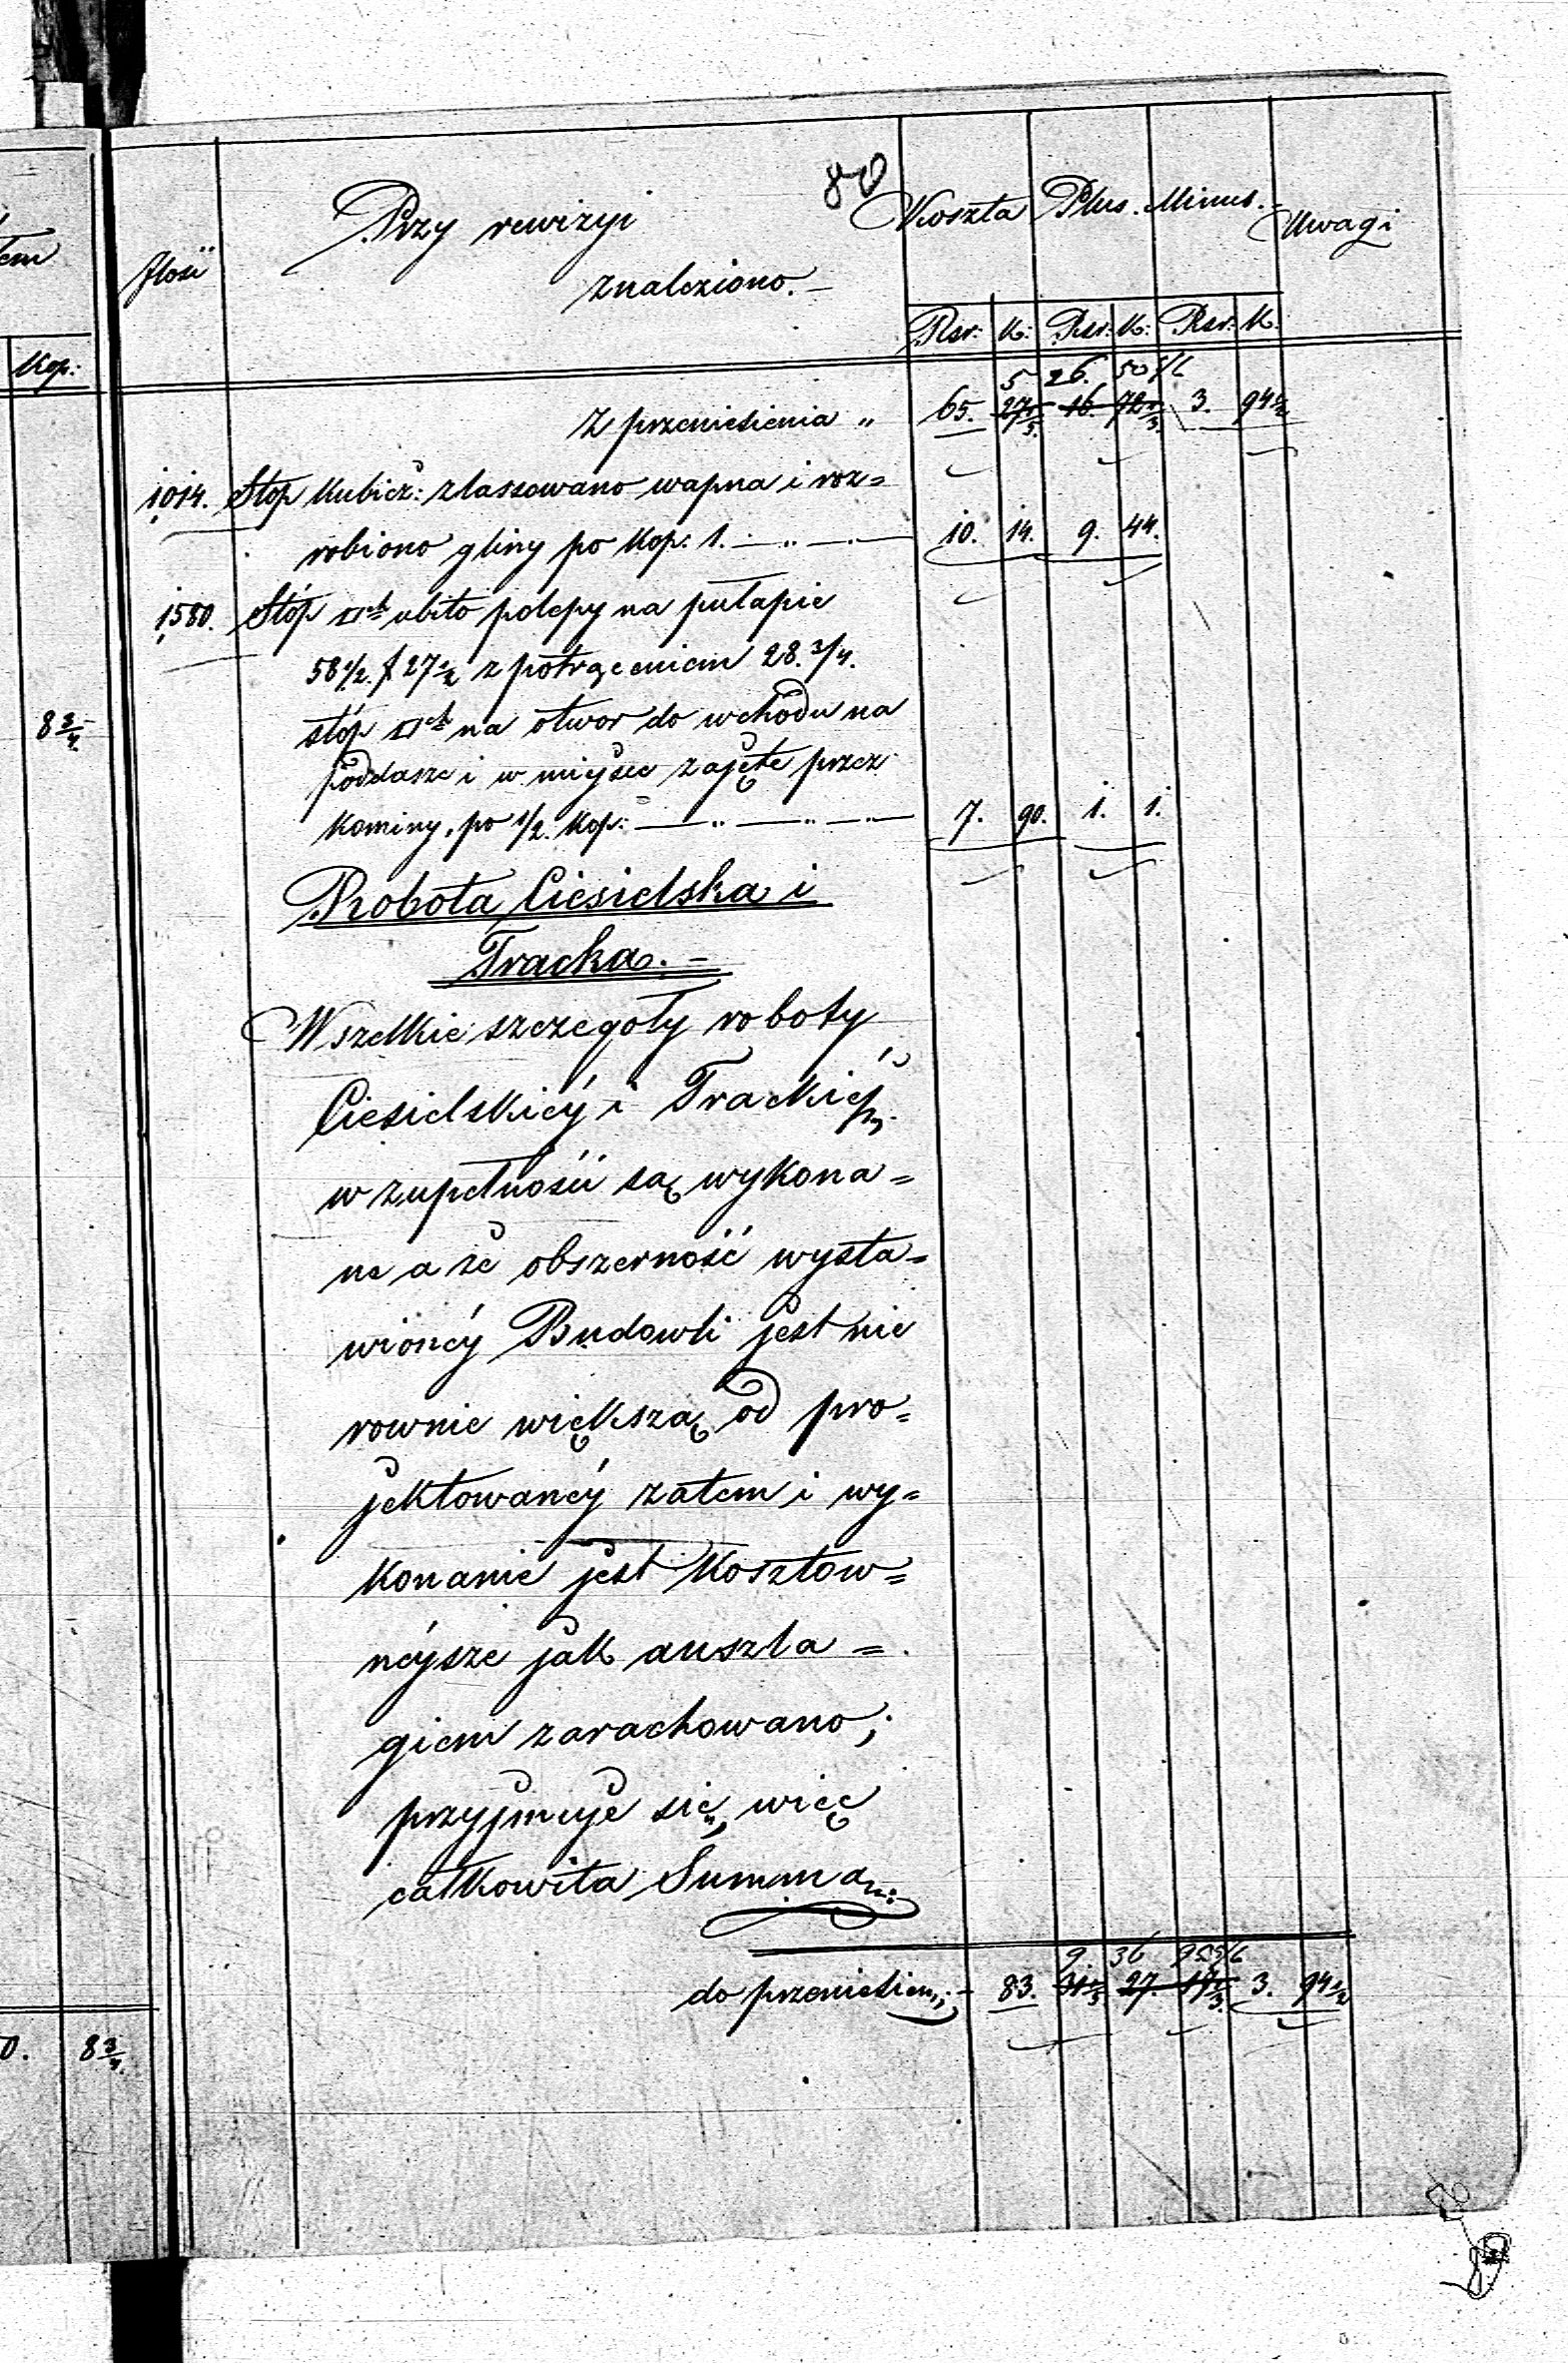 80
Przy rewizyi
znaleziono. –
Ilość
Koszta Plus. Minus. – Uwagi
Rsr: K: Rsr: K: Rsr: K.
tem
Kop:
5 26. 50
Z przeniesienia „ 65. 16. 3. 94 1/2
1014. Stóp Kubicz: zlassowano wapna i roz=
robiono gliny po Kop: 1. — „ — 10. 14. 9. 44.
1580. Stóp □ch ubito polepy na pułapie
58 1/2. f 27 1/2 z potrąceniem 28. 3/4.
8 3/4.
stóp □ch na otwor do wchodu na
poddasze i w miejsce zajęte przez
kominy, po 1/2. Kop: — „ — „ — „ — 7. 90. 1. 1.
Robota Ciesielska i
Tracka. –
Wszelkie szczegóły roboty
Ciesielskiéy i Trackiéy
w zupełności są wykona=
ne a że obszerność wysta=
wionéy Budowli jest nie
rownie większą od pro=
jektowanéy zatem i wy=
konanie jest kosztow=
néysze jak anszla=
giem zarachowano;
przyjmuje się, więc
całkowita Summa
9. 36
do przeniesien: – 83. 27. 3. 94 1/2
0. 8 3/4.